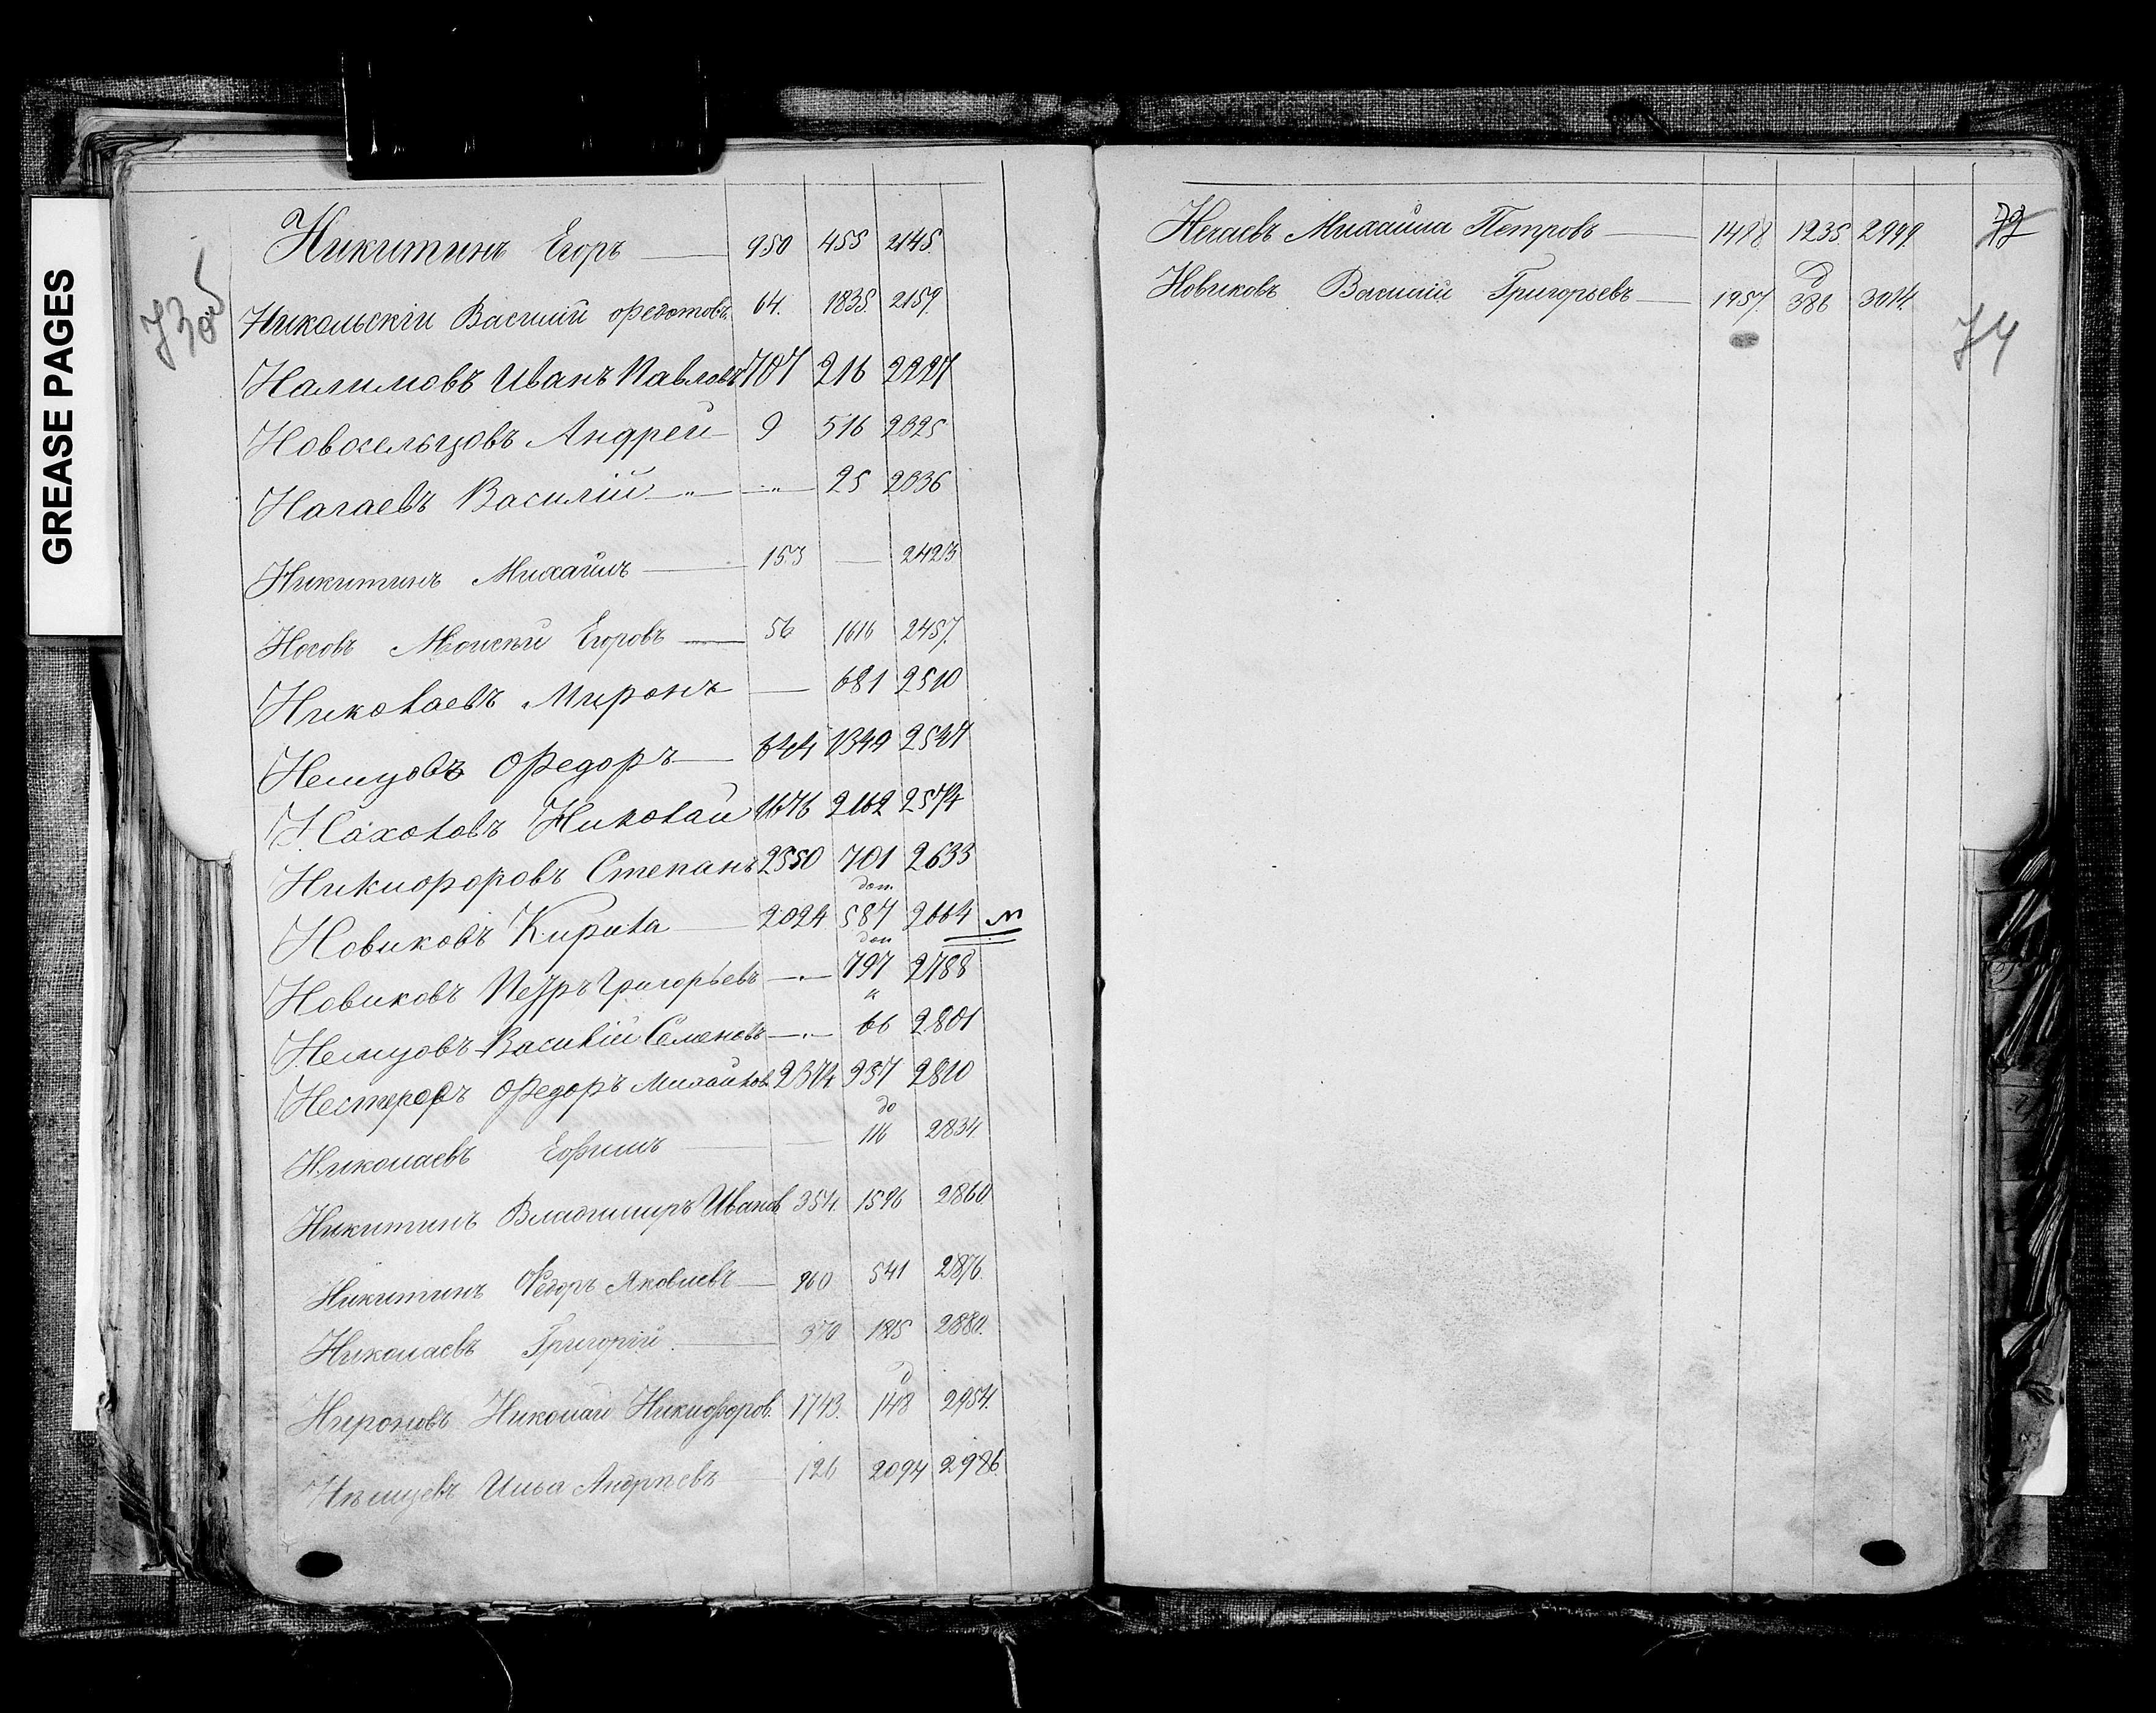 GREASE PAGES
73 об
Никитинъ Егоръ 950 455 2145.
Никольскій Василій Федотовъ 64. 1835. 2159.
Налимовъ Иванъ Павловъ 707 216 2227
Новосельцовъ Андрей 9 516 2325
Нагаевъ Василій 25 2336
Никитинъ Михаилъ 153 — 2423
Носовъ Егоровъ 56 1616 2457.
Николаевъ Миронъ — 681 2510
Немцовъ Федоръ 644 1349 2547
Николай 1676 2162 2574
Никифоровъ Степанъ 2550 701 2633
доп.
Новиковъ Кирила 2024 587 2664 N
доп
Новиковъ Петръ Григорьевъ 797 2788
Немцовъ Василій Семеновъ 66 2801
Нестеровъ Федоръ Михайлов 2374 937 2810
до
Николаевъ Ефимъ — 116 2834
Никитинъ Владимиръ Иванов 354. 1596 2860
Никитинъ Федоръ Яковлевъ 960 541 2876.
Николаевъ Григорій 370 1815 2880.
д
Николай Никифоров. 1743. 148 2954.
Нѣмцевъ Илья Андреевъ 126 2094 2986.
Нечаевъ Михаила Петровъ 1488 1235 2999.
д
Новиковъ Василій Григорьевъ 1957. 386 3014.
74